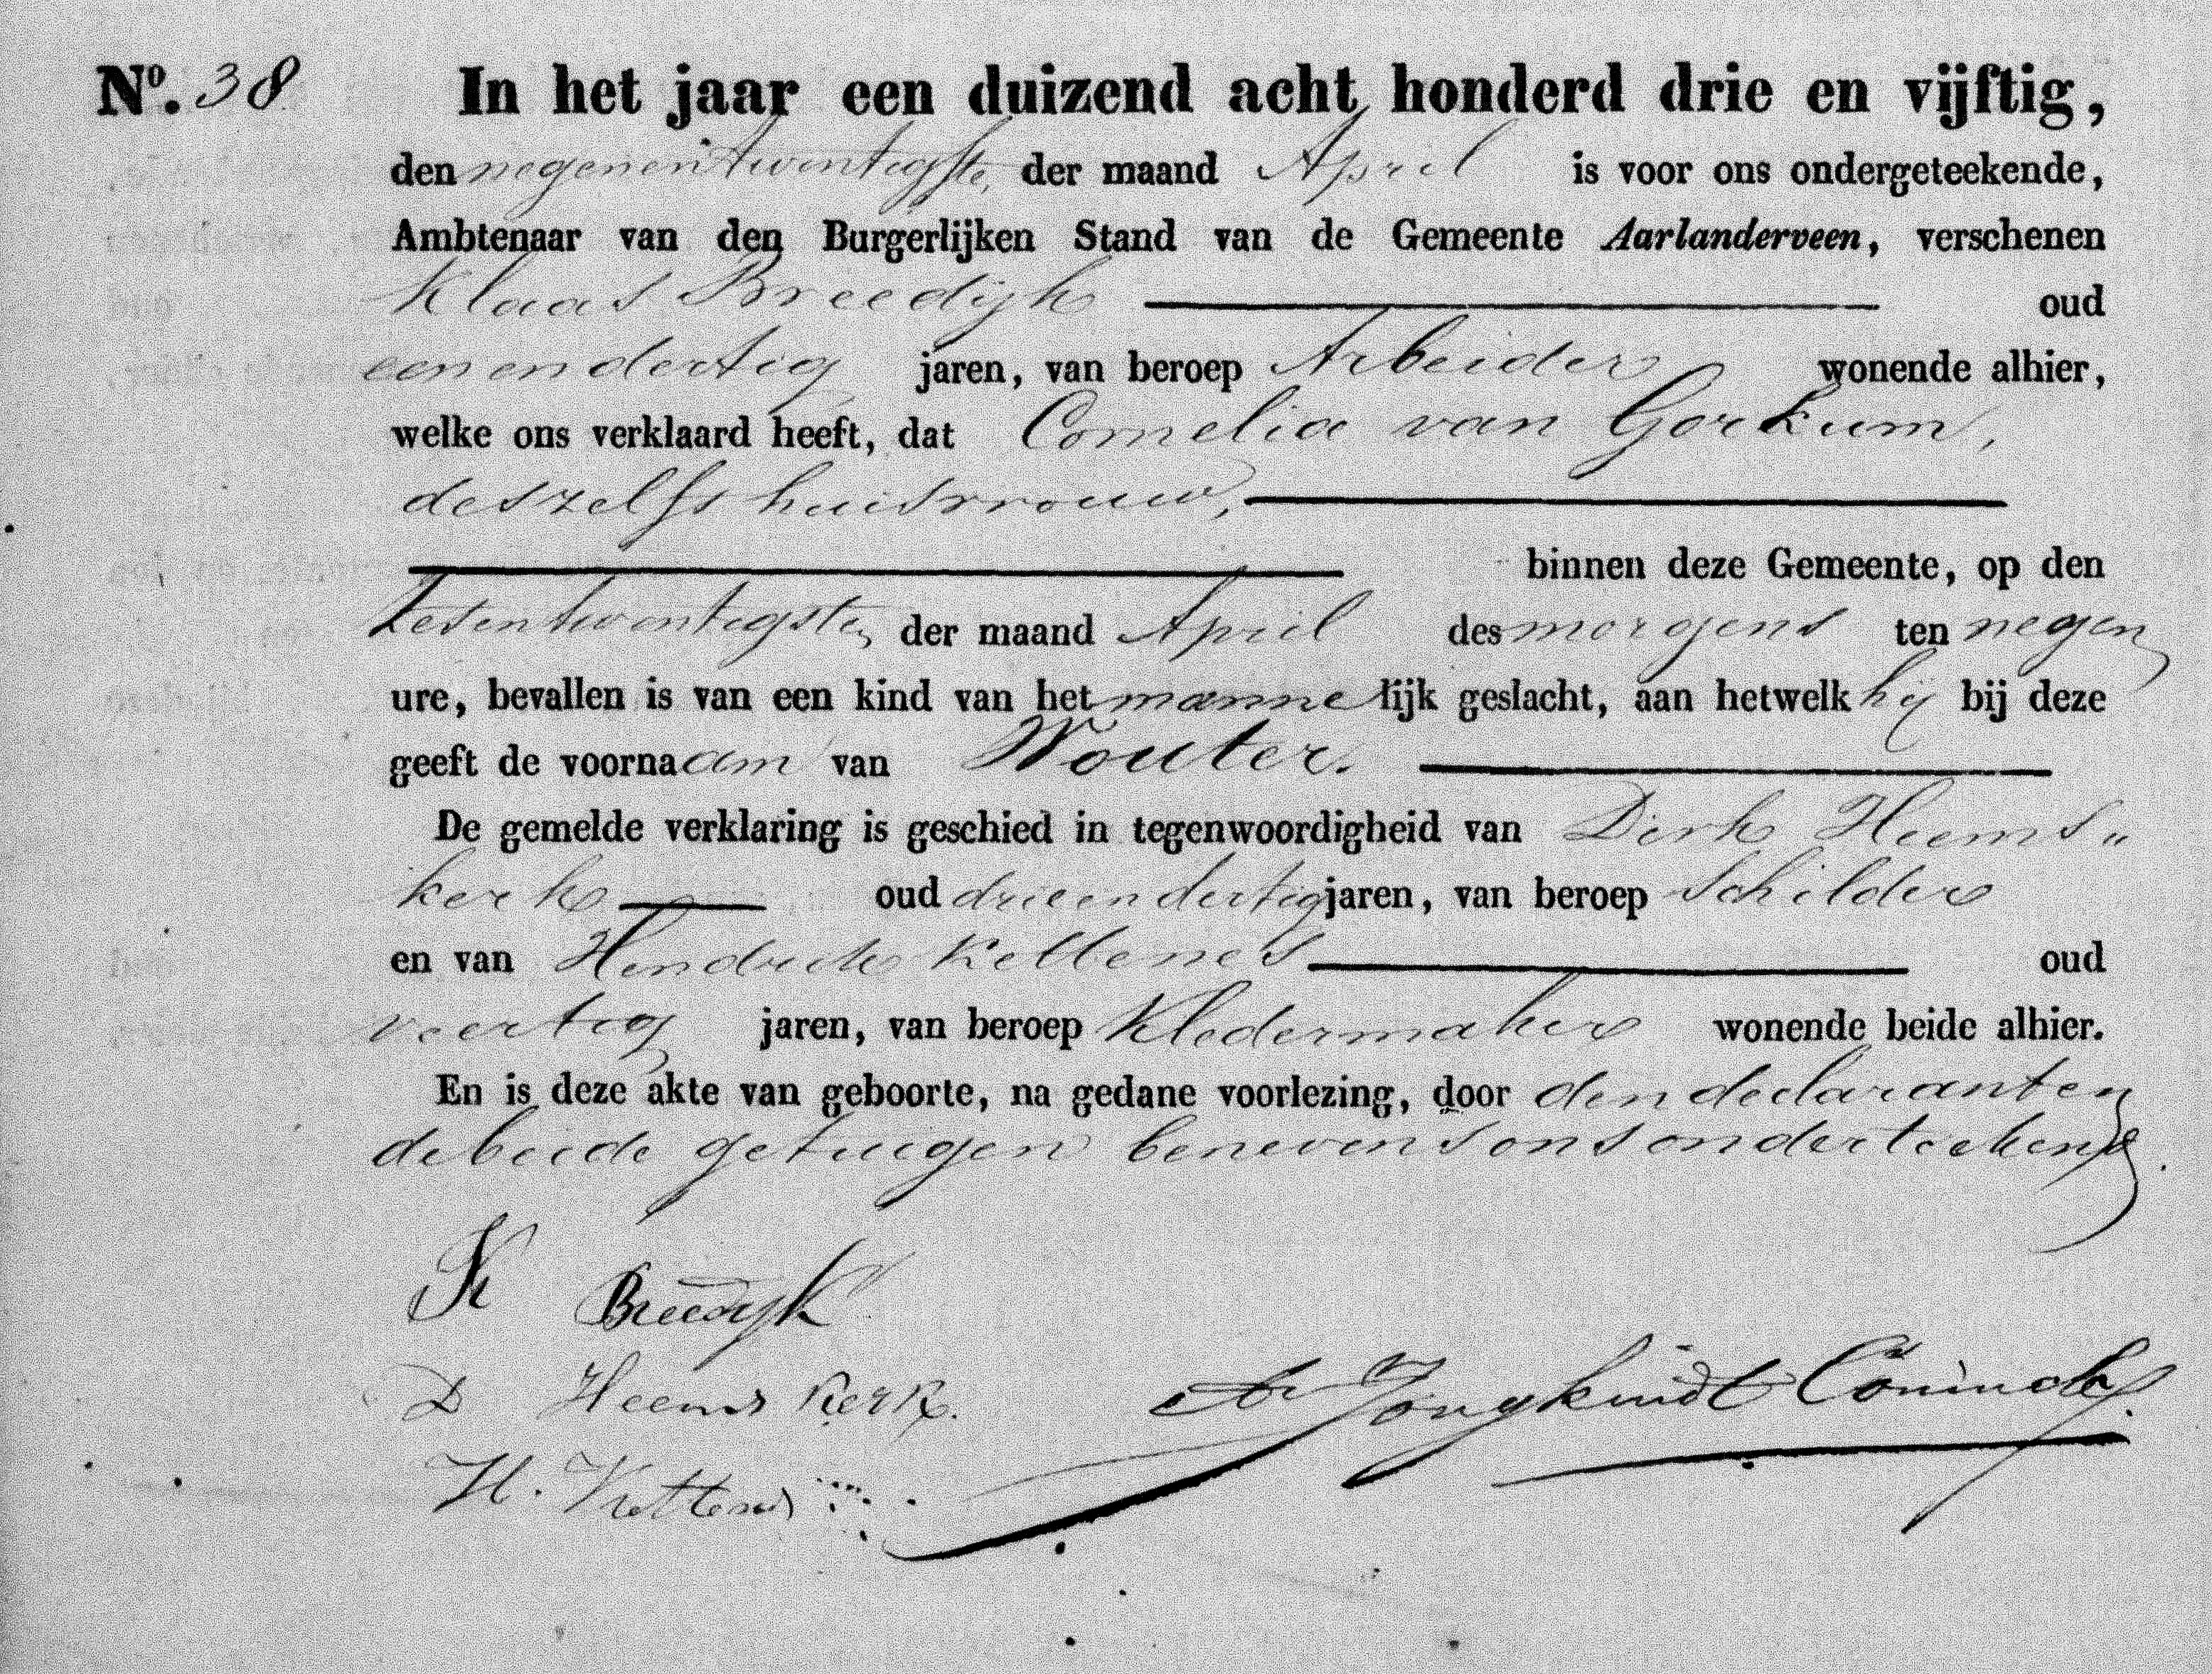 Nº. 38 In het jaar een duizend acht honderd drie en vijftig,
den negenentwintigste, der maand April is voor ons ondergeteekende,
Ambtenaar van den Burgerlijken Stand van de Gemeente Aarlanderveen, verschenen
Klaas Breedijk oud
eenendertig jaren, van beroep Arbeider wonende alhier,
welke ons verklaard heeft, dat Cornelia van Gorkum,
deszelfs huisvrouw,
binnen deze Gemeente, op den
Zesentwintigste, der maand April des morgens ten negen
ure, bevallen is van een kind van het mannelijk geslacht, aan hetwelk hij bij deze
geeft de voornaam van Wouter.
De gemelde verklaring is geschied in tegenwoordigheid van Dirk Heems„
kerk oud drieendertig jaren, van beroep Schilder
en van Hendrik oud
veertig jaren, van beroep Kledermaker wonende beide alhier.
En is deze akte van geboorte, na gedane voorlezing, door den declarant en
de beide getuigen benevens ons onderteekend.
K Breedijk
D Heemskerk.
Jongkindt Coninck
H.